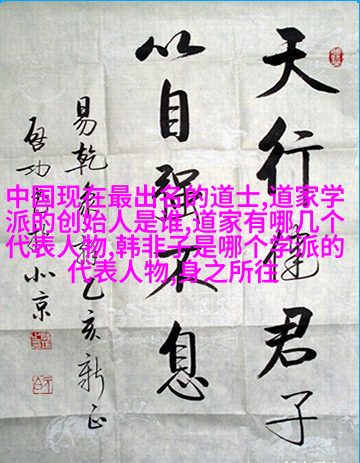 中国现在最出名的道士,道家学
派的创始人是谁,道家有哪几个
代表人物,韩非子是哪个学派的
代表人物,身之所往
天行健君子
以自强不息
易乾乙亥新正
启功京